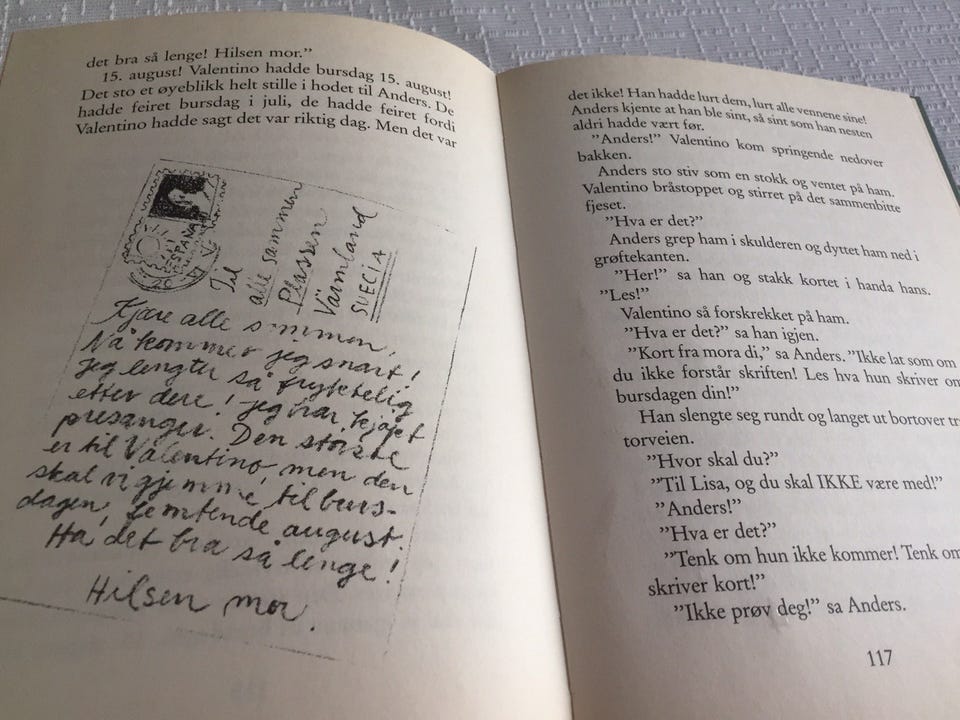 det bra så lenge! Hilsen mor.”
15. august! Valentino hadde bursdag 15. august!
Det sto et øyeblikk helt stille i hodet til Anders. De
hadde feiret bursdag i juli, de hadde feiret fordi
Valentino hadde sagt det var riktig dag. Men det var
ESPAÑA
Til
alle sammen
Plassen
Värmland
SUECIA
Kjære alle sammen,
Nå kommer jeg snart!
Jeg lengter så fryktelig
etter dere! Jeg har kjøpt
presanger. Den største
er til Valentino, men den
skal vi gjemme til burs-
dagen, femtende august.
Ha det bra så lenge!
Hilsen mor.
det ikke! Han hadde lurt dem, lurt alle vennene sine!
Anders kjente at han ble sint, så sint som han nesten
aldri hadde vært før.
”Anders!” Valentino kom springende nedover
bakken.
Anders sto stiv som en stokk og ventet på ham.
Valentino bråstoppet og stirret på det sammenbitte
fjeset.
”Hva er det?”
Anders grep ham i skulderen og dyttet ham ned i
grøftekanten.
”Her!” sa han og stakk kortet i handa hans.
”Les!”
Valentino så forskrekket på ham.
”Hva er det?” sa han igjen.
”Kort fra mora di,” sa Anders. ”Ikke lat som om
du ikke forstår skriften! Les hva hun skriver om
bursdagen din!”
Han slengte seg rundt og langet ut bortover tr
torveien.
”Hvor skal du?”
”Til Lisa, og du skal IKKE være med!”
”Anders!”
”Hva er det?”
”Tenk om hun ikke kommer! Tenk om
skriver kort!”
”Ikke prøv deg!” sa Anders.
117